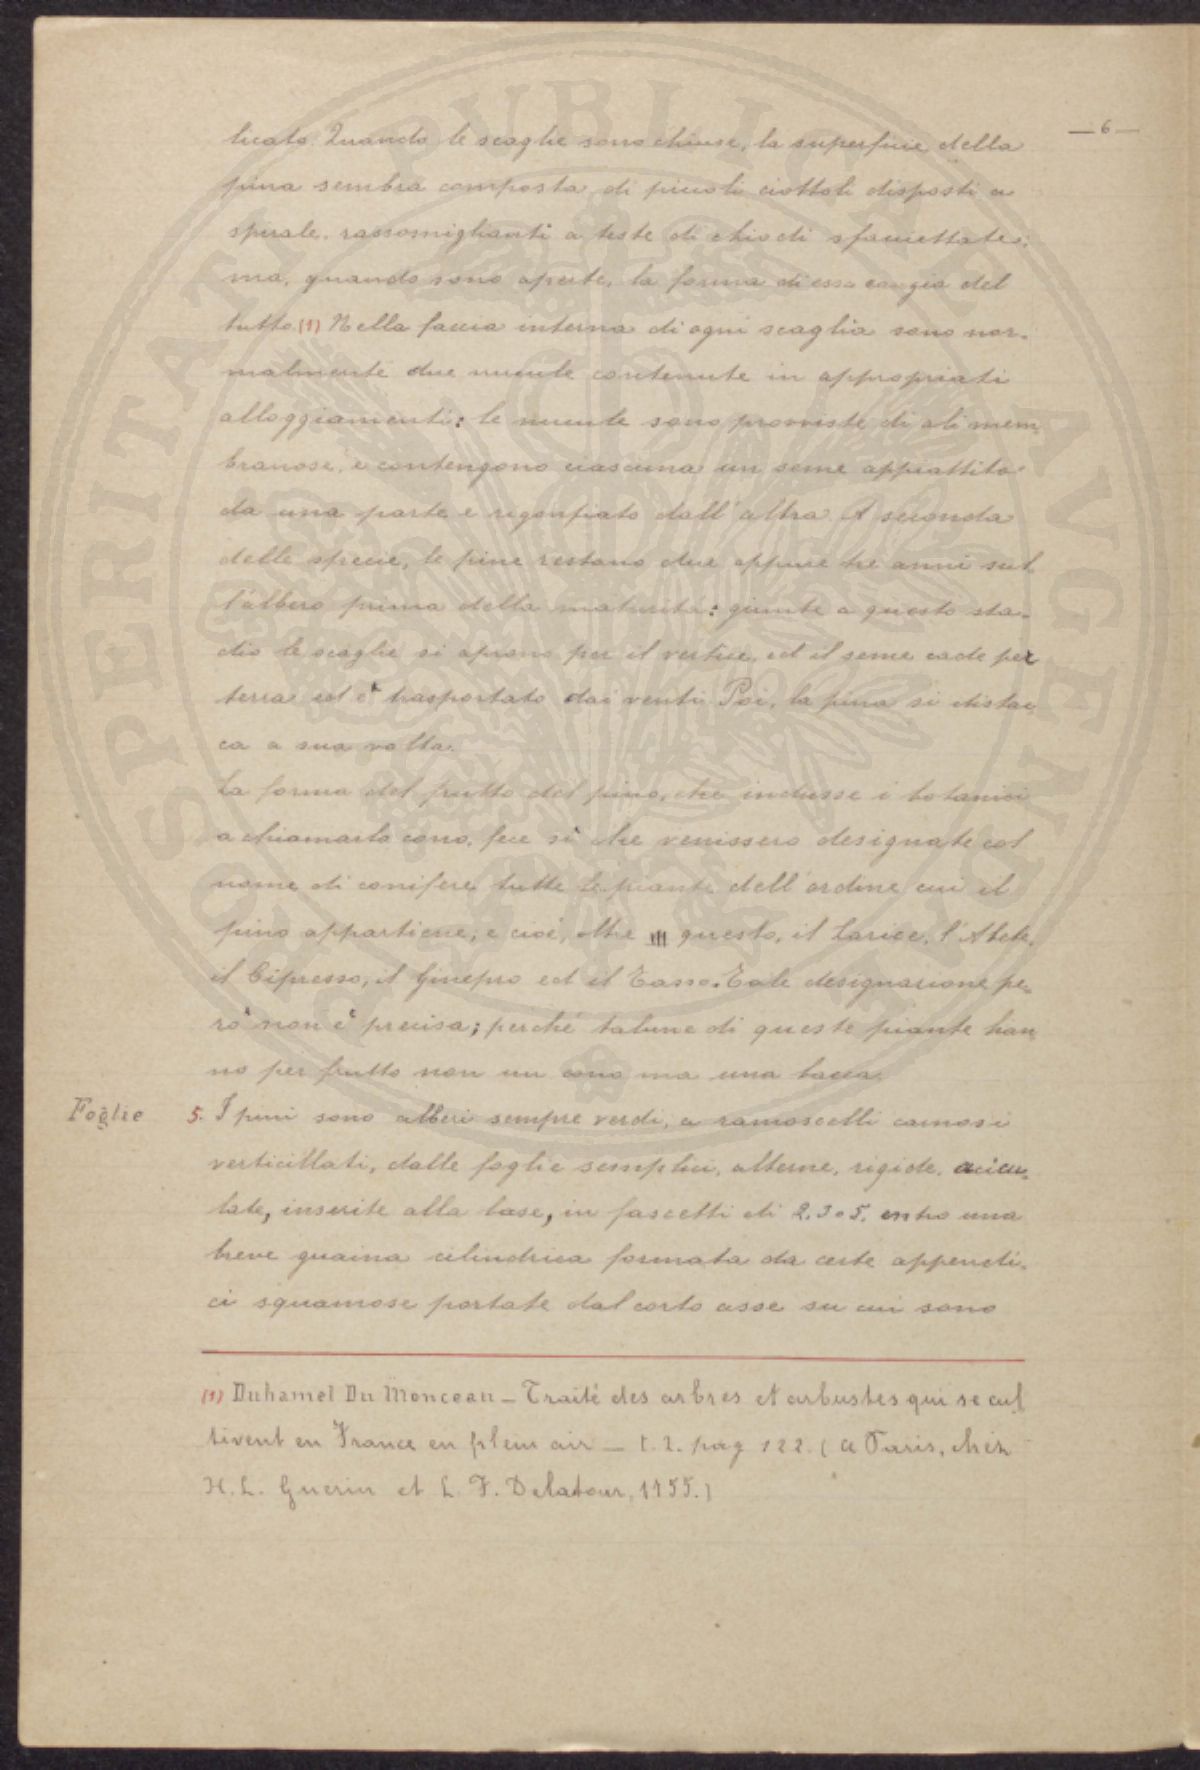 — 6 —
licato. Quando le scaglie sono chiuse, la superficie della
pina sembra composta di piccoli ciottoli disposti a
spirale, rassomiglianti a teste di chiodi sfaccettate;
ma, quando sono aperte, la forma di essa cangia del
tutto (1) Nella faccia interna di ogni scaglia sono nor-
malmente due nucule contenute in appropriati
alloggiamenti: le nucule sono provviste di ali mem-
branose, e contengono ciascuna un seme appiattito
da una parte e rigonfiato dall'altra. A seconda
delle specie, le pine restano due oppure tre anni sul-
l'albero prima della maturità: giunte a questo sta-
dio le scaglie si aprono per il vertice, ed il seme cade per
terra ed è trasportato dai venti. Poi, la pina si distac-
ca a sua volta.
La forma del frutto del pino, che indusse i botanici
a chiamarlo cono, fece sì che venissero designate col
nome di conifere tutte le piante dell'ordine cui il
pino appartiene; e cioè, oltre questo, il Larice, l'Abete,
il Cipresso, il Ginepro ed il Tasso. Tale designazione pe-
rò non è precisa; perché talune di queste piante han-
no per frutto non un cono ma una bacca.
Foglie 5. I pini sono alberi sempre verdi, a ramoscelli carnosi
verticillati, dalle foglie semplici, alterne, rigide, acicu-
late, inserite alla base, in fascetti di 2.3 o 5. entro una
breve guaina cilindrica formata da certe appendi-
ci squamose portate dal corto asse su cui sono
(1) Duhamel Du Monceau — Traité des arbres et arbustes qui se cul
tivent en France en plein air — t. 2. pag 122. (a Paris, chez
H. L. Guerin et L. F. Delatour, 1755.)
PROSPERITATI PUBLICAE AUGENDAE